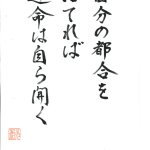 自分の都合を
捨てれば
運命は自ら開く